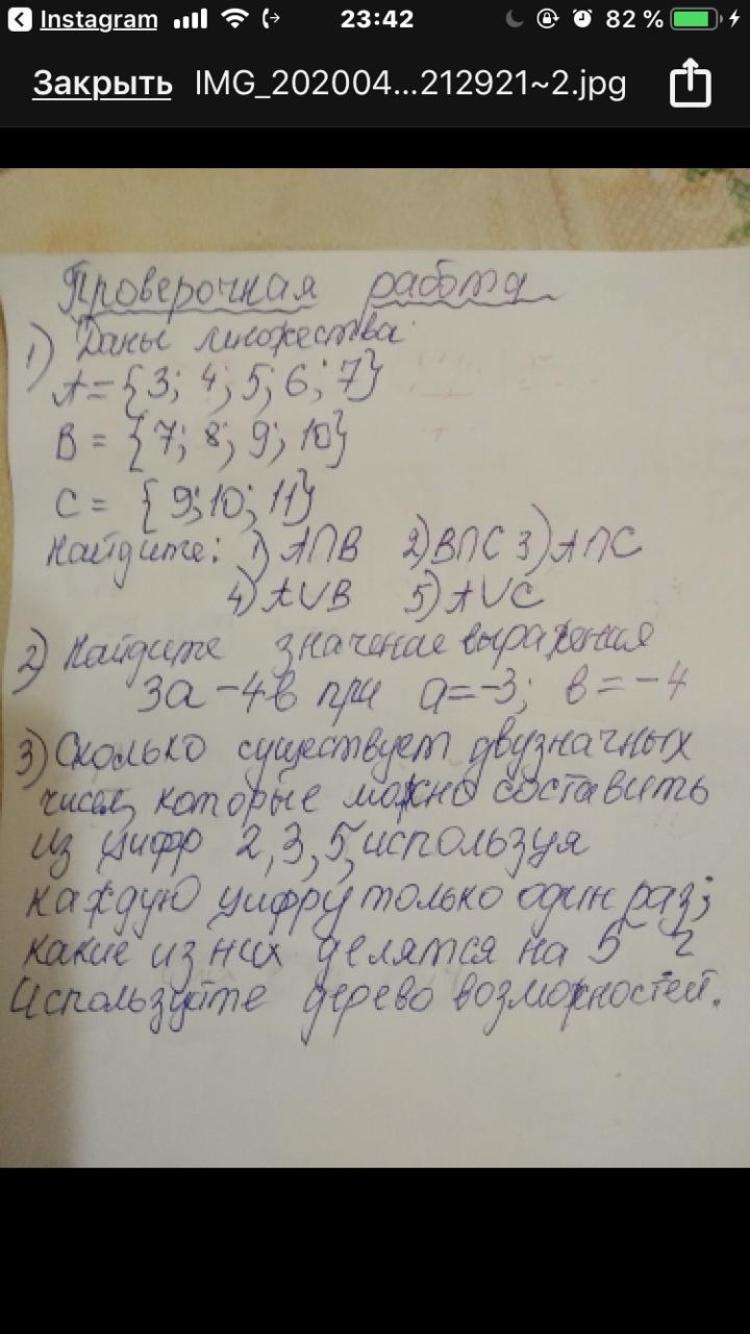 Instagram 23:42 82 %
Закрыть IMG_202004...212921~2.jpg
Проверочная работа
1) Даны множества
A = {3; 4; 5; 6; 7}
B = {7; 8; 9; 10}
C = {9; 10; 11}
Найдите: 1) A∩B 2) B∩C 3) A∩C
4) A∪B 5) A∪C
2) Найдите значение выражения
3a - 4в при a = -3; в = -4
3) Сколько существует двузначных
чисел, которые можно составить
из цифр 2, 3, 5, используя
каждую цифру только один раз;
какие из них делятся на 5 ?
Используйте дерево возможностей.